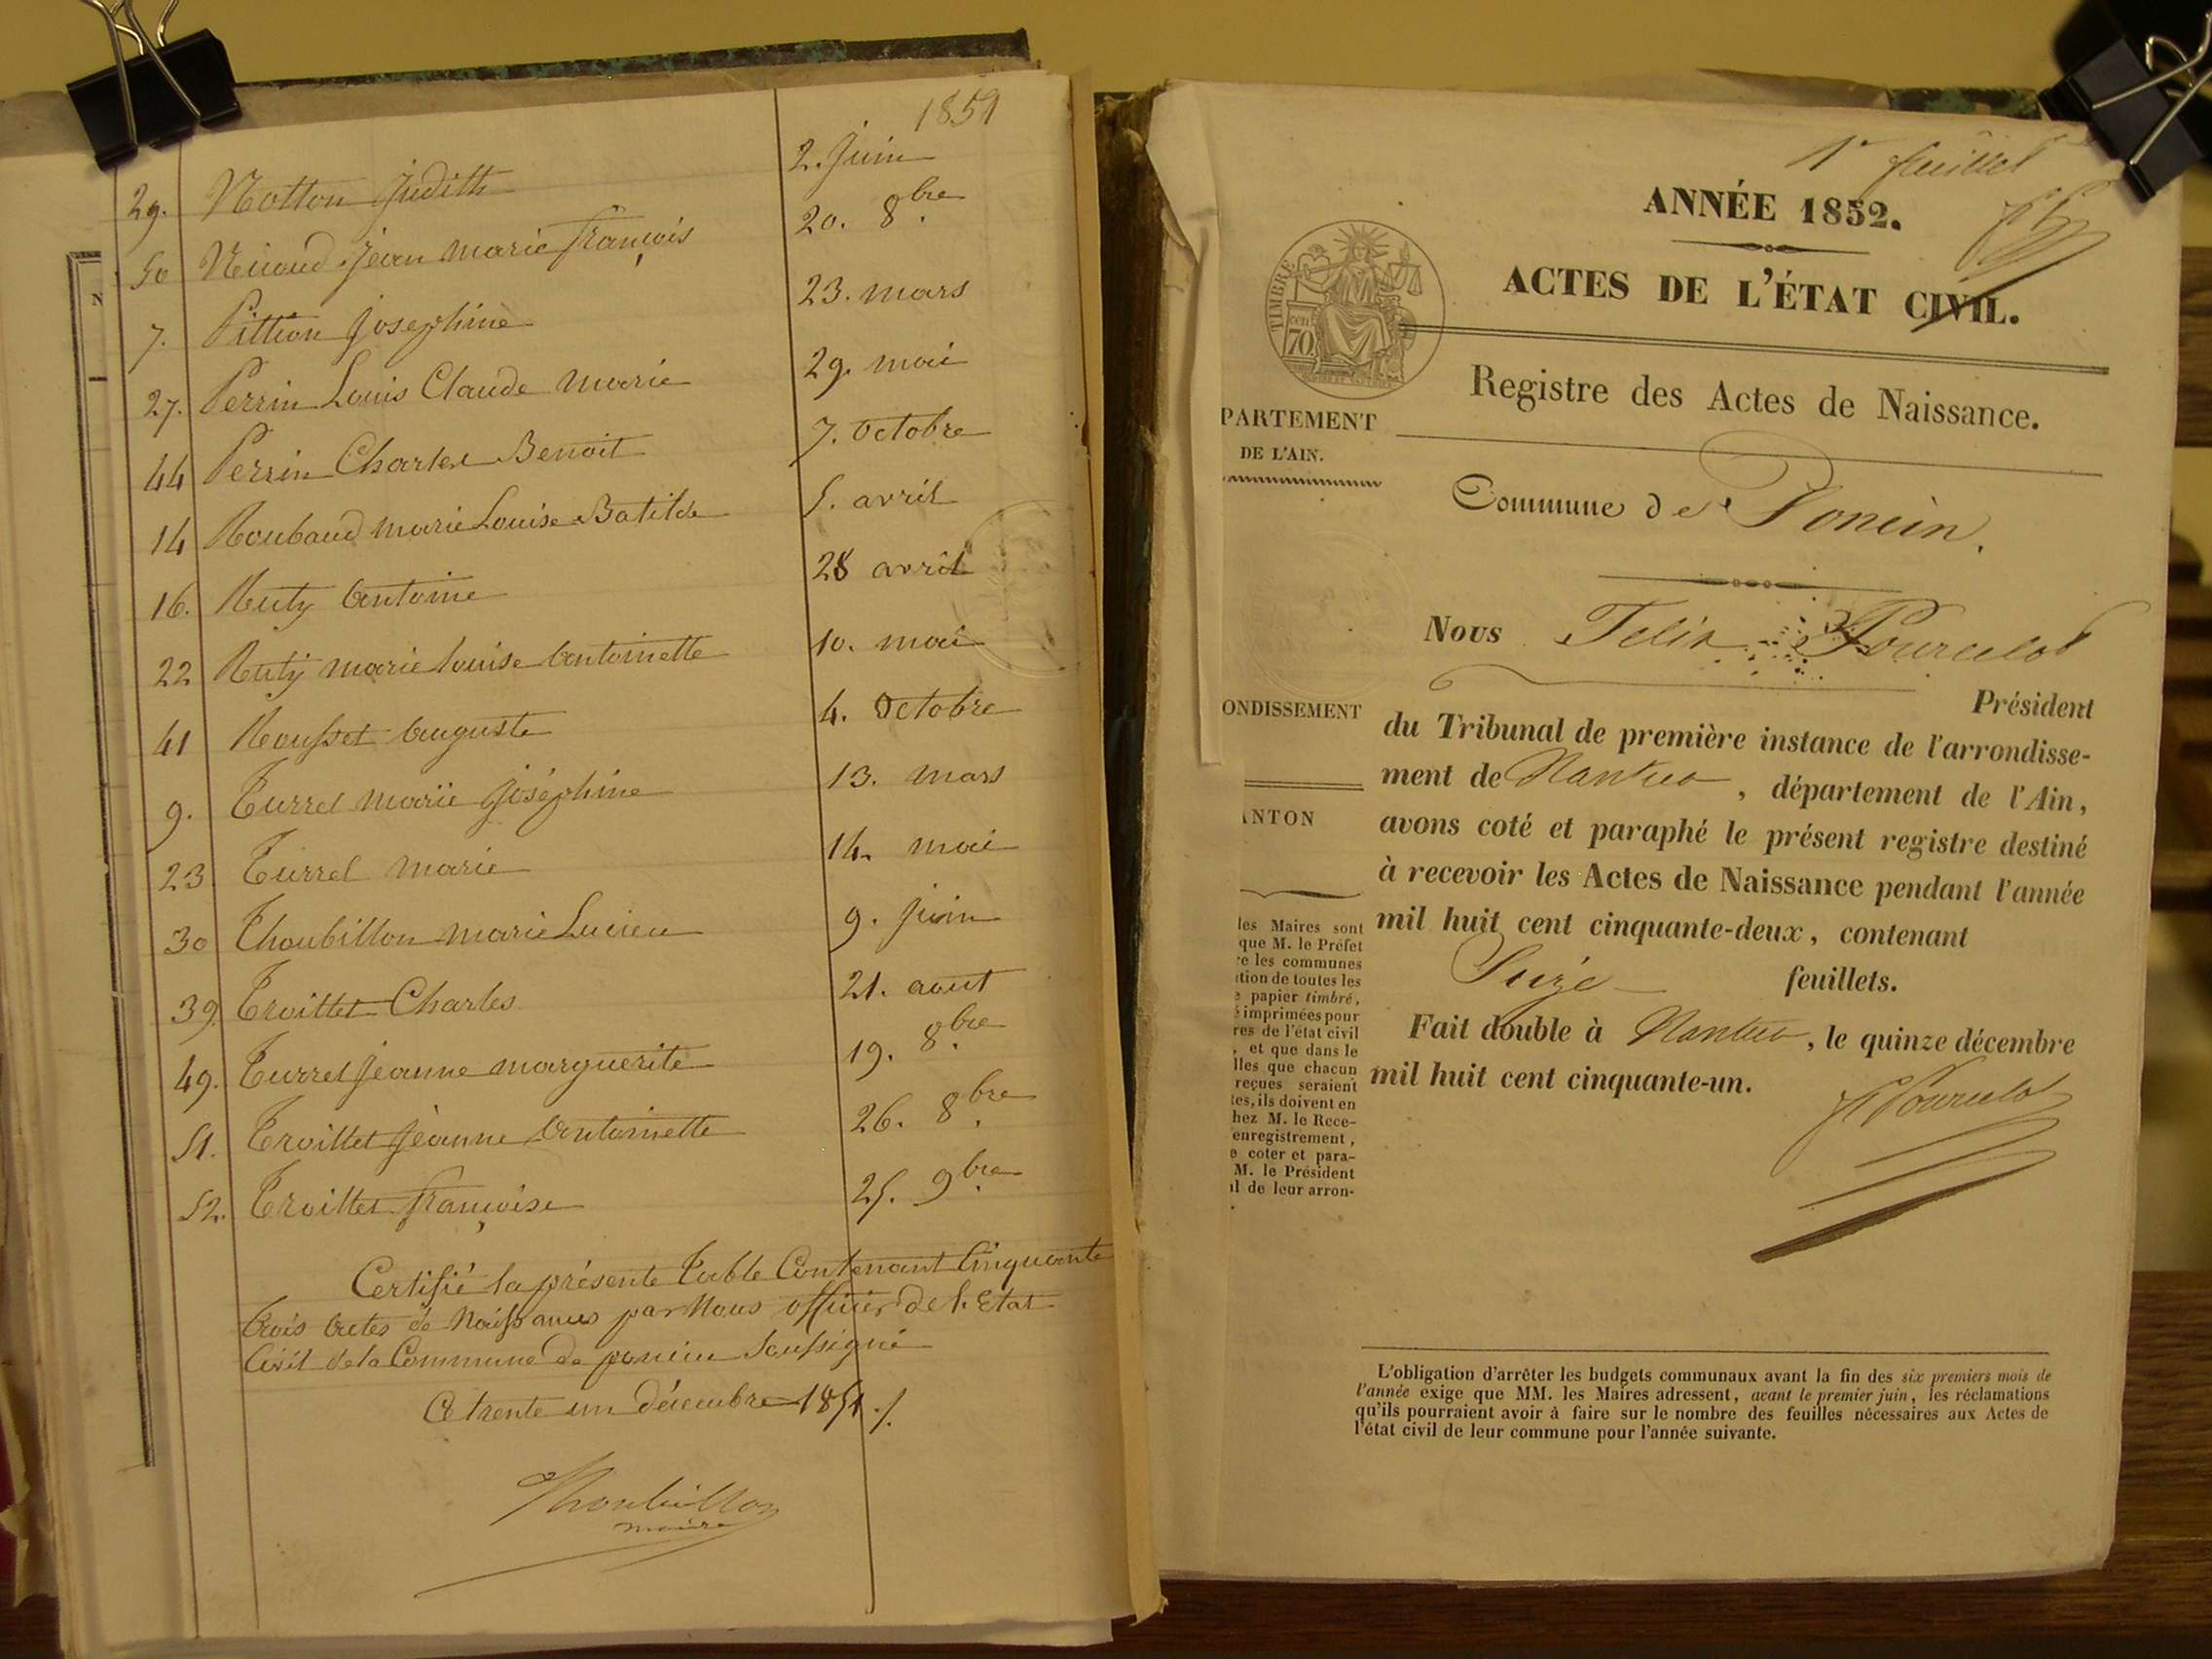 1851
29. Notton Judith 2. Juin
50 Niiaud Jean Marie François 20. 8bre
7. Pittion Joséphine 23. mars
27. Perrin Louis Claude Marie 29. mai
44 Perrin Charles Benoit 7. Octobre
14 Roubaud Marie Louise Batilde 5. avril
16. Ruty Antoine 28 avril
22 Ruty Marie Louise Antoinette 10. mai
41 Rousset Auguste 4. Octobre
9. Turrel Marie Joséphine 13. mars
23 Turrel Marie 14. mai
30 Thoubillon Marie Lucien 9. Juin
39. Troillet Charles 21. aout
49. Turrel Jeanne Marguerite 19. 8bre
51. Troillet Jeanne Antoinette 26. 8bre
52. Troillet Françoise 25. 9bre
Certifié la présente Table Contenant Cinquante
trois Actes de Naissances par Nous officier de l'Etat
Civil de la Commune de poncin Soussigné
Ce trente un décembre 1851 ./.
Thoubillon
maire
1er feuillet
ANNÉE 1852.
ACTES DE L'ÉTAT CIVIL.
TIMBRE
cen
70
Registre des Actes de Naissance.
PARTEMENT
DE L'AIN.
Commune de Poncin.
Nous Félix Pourcelot
Président
ONDISSEMENT
du Tribunal de première instance de l'arrondisse-
ment de Nantua, département de l'Ain,
ANTON
avons coté et paraphé le présent registre destiné
à recevoir les Actes de Naissance pendant l'année
mil huit cent cinquante-deux, contenant
Seize feuillets.
Fait double à Nantua, le quinze décembre
mil huit cent cinquante-un.
F Pourcelot
les Maires sont
que M. le Préfet
re les communes
tion de toutes les
e papier timbré,
s imprimées pour
res de l'état civil
, et que dans le
lles que chacun
reçues seraient
tes, ils doivent en
hez M. le Rece-
enregistrement,
e coter et para-
M. le Président
il de leur arron-
L'obligation d'arrêter les budgets communaux avant la fin des six premiers mois de
l'année exige que MM. les Maires adressent, avant le premier juin, les réclamations
qu'ils pourraient avoir à faire sur le nombre des feuilles nécessaires aux Actes de
l'état civil de leur commune pour l'année suivante.